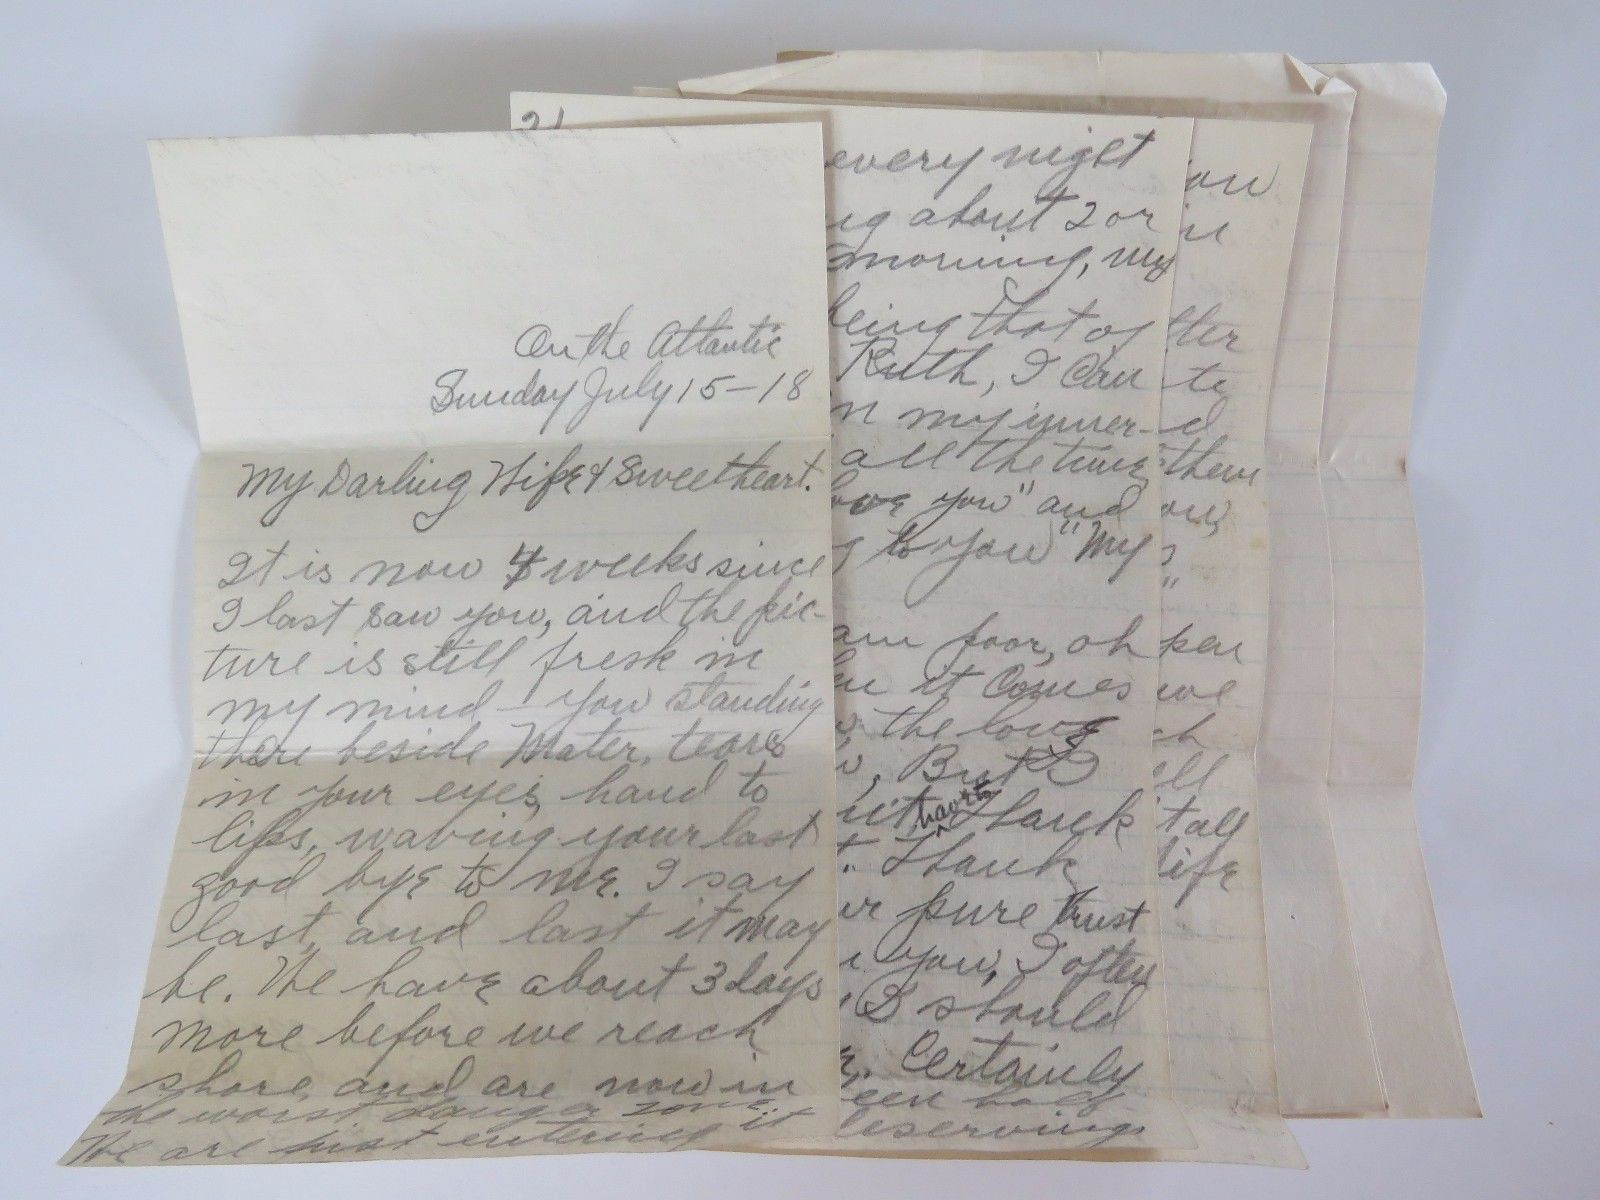 On the Atlantic
Sunday July 15-18
My Darling Wife & Sweetheart.
It is now 4 weeks since
I last saw you, and the pic-
ture is still fresh in
my mind - You standing
there beside Mater, tears
in your eyes, hand to
lips, waving your last
good bye to me. I say
last, and last it may
be. We have about 3 days
more before we reach
shore, and are now in
the worst danger zone.
We are just entering it
2
every night
about 2 or
morning, my
being that of
Ruth, I can
my inner-
all the time
love you" and
to you "My
am poor, oh
it comes
the love
But I
have to thank
Thank
pure trust
you, I often
I should
Certainly
been half
deserving
ou
in
tter
to
d
them
ou,
"
pen
we
ch
ell
t all
life